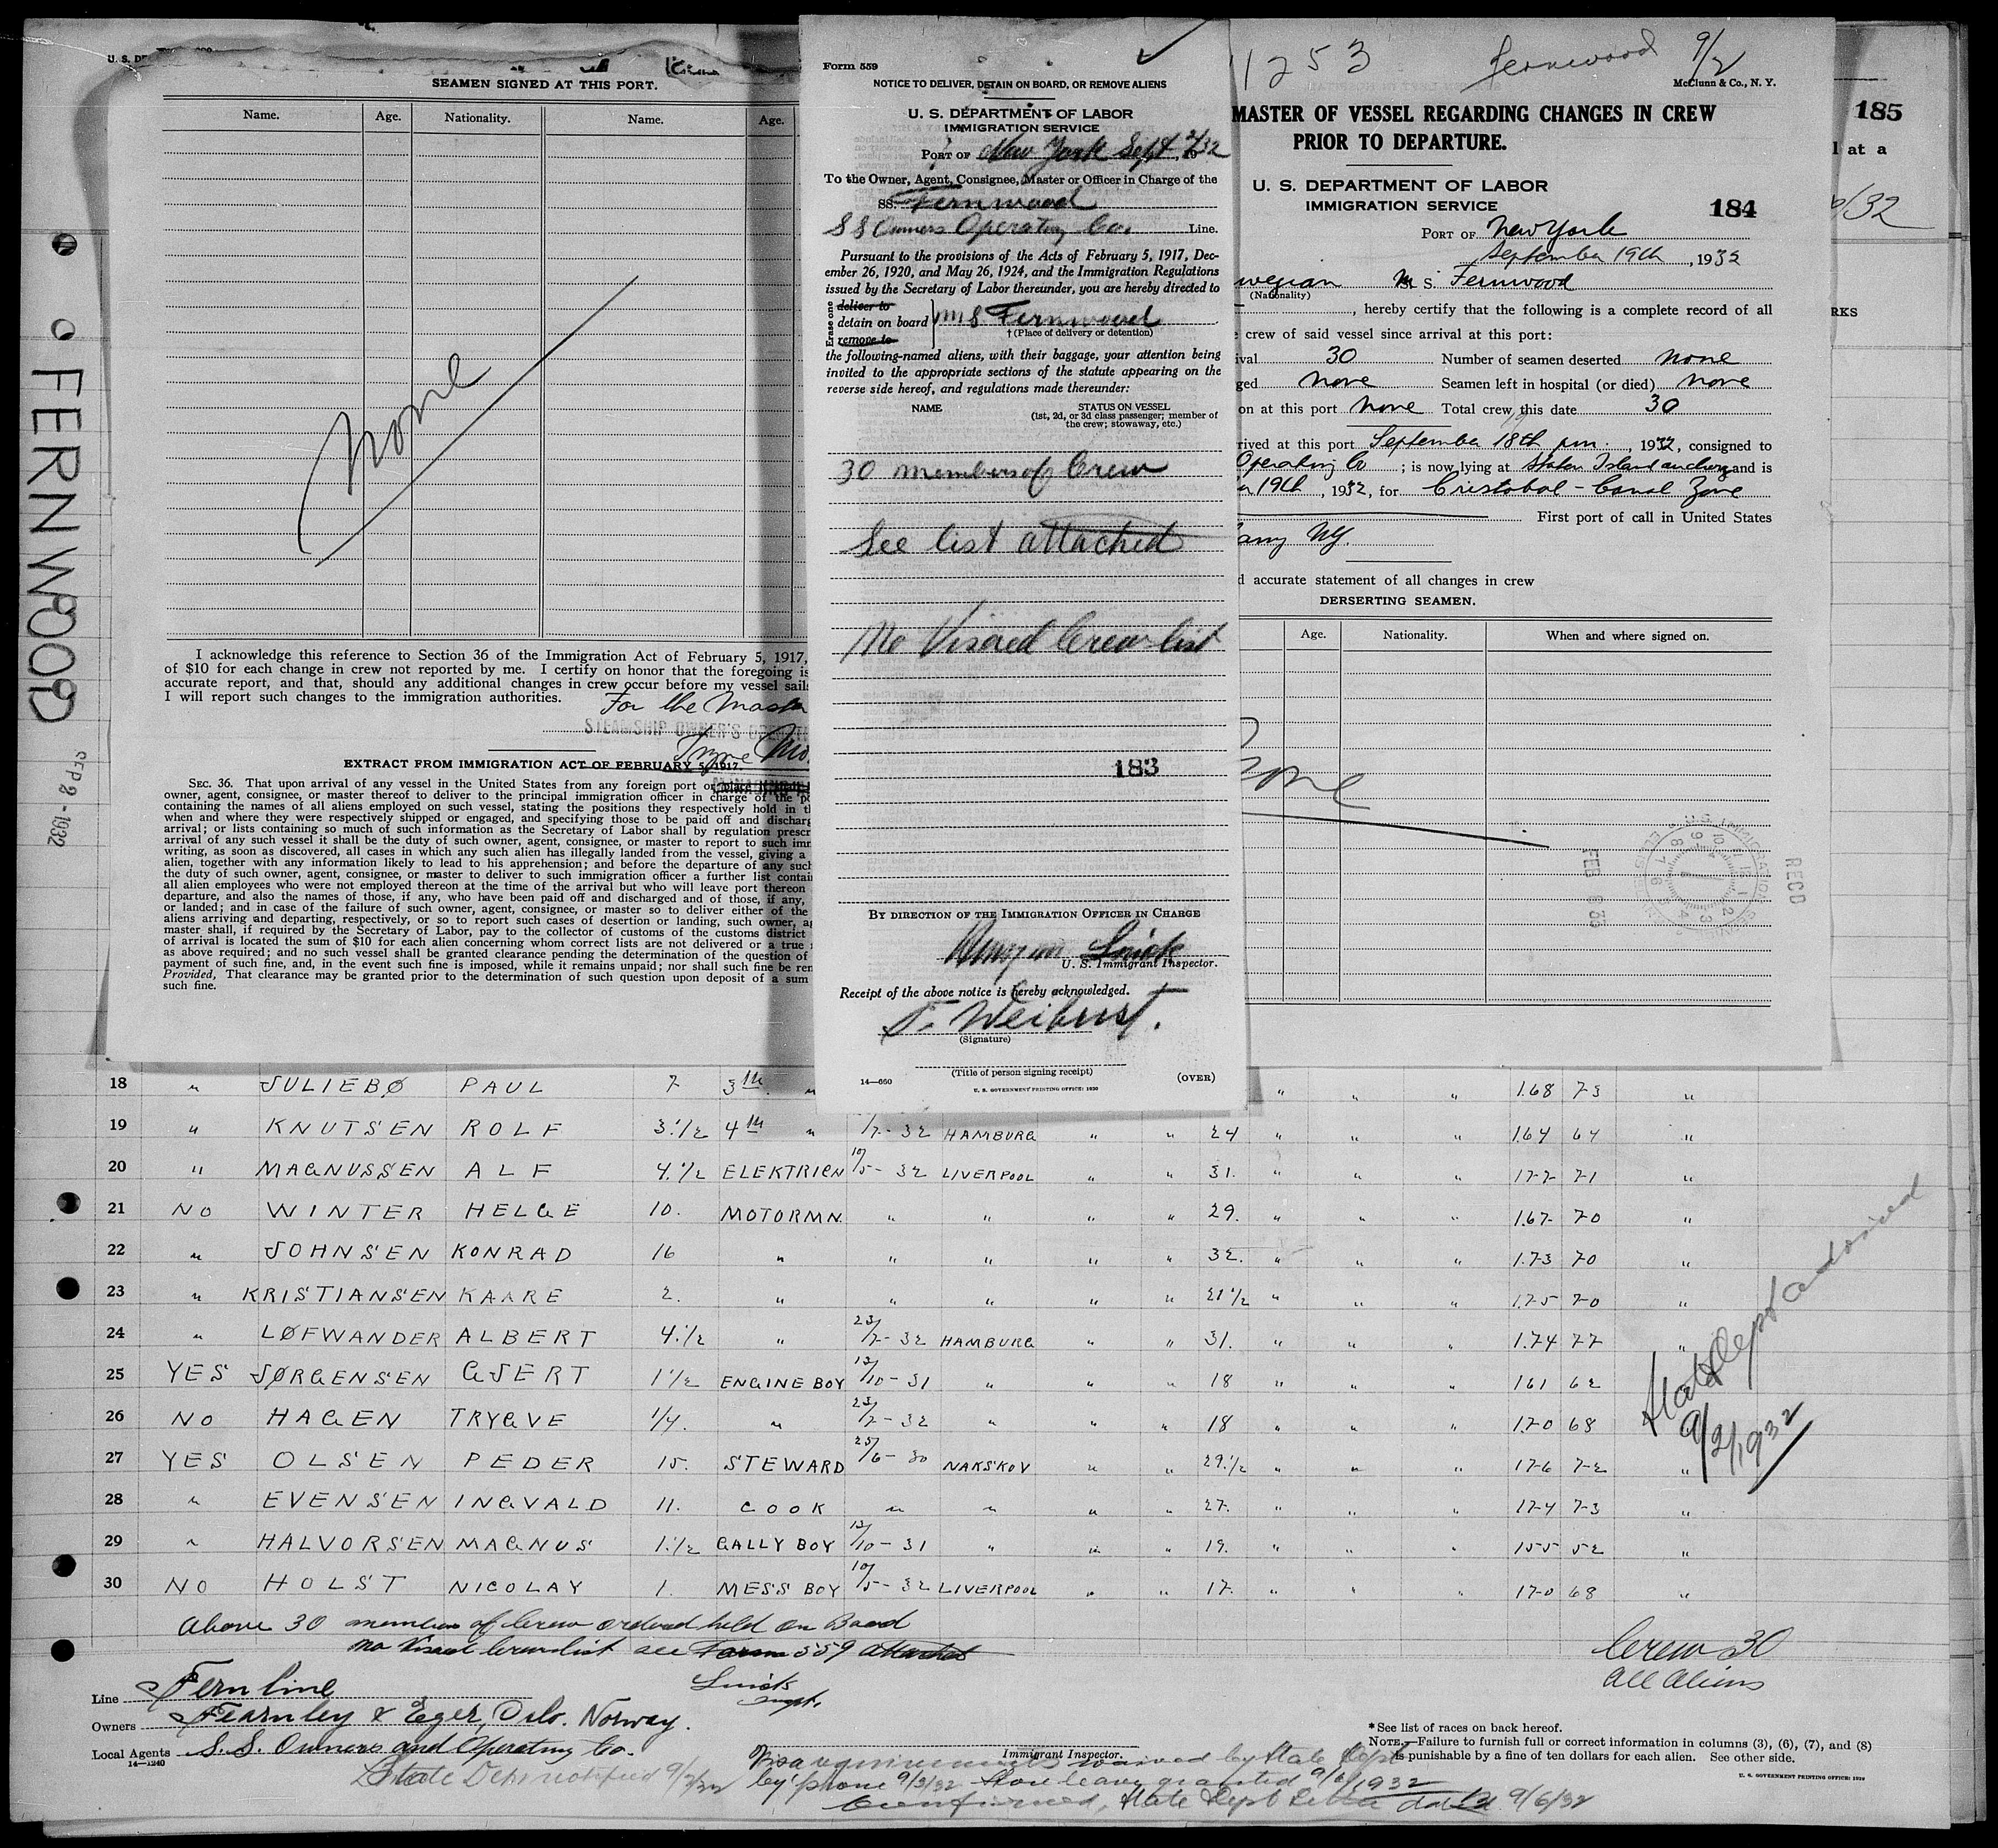 FERNWOOD
SEP 2 - 1932
SEAMEN SIGNED AT THIS PORT.
Name. Age. Nationality. Name. Age.
None
I acknowledge this reference to Section 36 of the Immigration Act of February 5, 1917,
of $10 for each change in crew not reported by me. I certify on honor that the foregoing is
accurate report, and that, should any additional changes in crew occur before my vessel sail
I will report such changes to the immigration authorities.
For the Master
STEAMSHIP OWNER'S
EXTRACT FROM IMMIGRATION ACT OF FEBRUARY 5, 1917.
SEC. 36. That upon arrival of any vessel in the United States from any foreign port or place
owner, agent, consignee, or master thereof to deliver to the principal immigration officer in charge of the po
containing the names of all aliens employed on such vessel, stating the positions they respectively hold in th
when and where they were respectively shipped or engaged, and specifying those to be paid off and discharg
arrival; or lists containing so much of such information as the Secretary of Labor shall by regulation prescr
arrival of any such vessel it shall be the duty of such owner, agent, consignee, or master to report to such imm
writing, as soon as discovered, all cases in which any such alien has illegally landed from the vessel, giving a
alien, together with any information likely to lead to his apprehension; and before the departure of any such
the duty of such owner, agent, consignee, or master to deliver to such immigration officer a further list contai
all alien employees who were not employed thereon at the time of the arrival but who will leave port thereon
departure, and also the names of those, if any, who have been paid off and discharged and of those, if any,
or landed; and in case of the failure of such owner, agent, consignee, or master so to deliver either of the
aliens arriving and departing, respectively, or so to report such cases of desertion or landing, such owner, ag
master shall, if required by the Secretary of Labor, pay to the collector of customs of the customs district
of arrival is located the sum of $10 for each alien concerning whom correct lists are not delivered or a true
as above required; and no such vessel shall be granted clearance pending the determination of the question of
payment of such fine, and, in the event such fine is imposed, while it remains unpaid; nor shall such fine be rem
Provided, That clearance may be granted prior to the determination of such question upon deposit of a sum
such fine.
Form 559
NOTICE TO DELIVER, DETAIN ON BOARD, OR REMOVE ALIENS
U. S. DEPARTMENT OF LABOR
IMMIGRATION SERVICE
PORT OF New York Sept 2/32
To the Owner, Agent, Consignee, Master or Officer in Charge of the
SS. Fernwood
S S Owners Operating Co. Line.
Pursuant to the provisions of the Acts of February 5, 1917, Dec-
ember 26, 1920, and May 26, 1924, and the Immigration Regulations
issued by the Secretary of Labor thereunder, you are hereby directed to
Erase one
deliver to
detain on board
remove to
MS Fernwood
† (Place of delivery or detention)
the following-named aliens, with their baggage, your attention being
invited to the appropriate sections of the statute appearing on the
reverse side hereof, and regulations made thereunder:
NAME STATUS ON VESSEL
(1st, 2d, or 3d class passenger; member of
the crew; stowaway, etc.)
30 members of Crew
See list attached
No Visaed Crew list
183
BY DIRECTION OF THE IMMIGRATION OFFICER IN CHARGE
U. S. Immigrant Inspector.
Receipt of the above notice is hereby acknowledged.
T. Weibust.
(Signature)
(Title of person signing receipt)
14—660 U. S. GOVERNMENT PRINTING OFFICE: 1930 (OVER)
1253 Fernwood 9/2
McClunn & Co., N. Y.
MASTER OF VESSEL REGARDING CHANGES IN CREW
PRIOR TO DEPARTURE.
U. S. DEPARTMENT OF LABOR
IMMIGRATION SERVICE
184
PORT OF New York
September 19th, 1932
wegian M S. Fernwood
(Nationality)
, hereby certify that the following is a complete record of all
crew of said vessel since arrival at this port:
ival 30 Number of seamen deserted none
ged none Seamen left in hospital (or died) none
on at this port none Total crew this date 30
rived at this port September 18th pm., 1932, consigned to
Operating Co ; is now lying at Staten Island anchorg and is
19th, 1932, for Cristobal - Canal Zone
First port of call in United States
NY.
d accurate statement of all changes in crew
DERSERTING SEAMEN.
Age. Nationality. When and where signed on.
None
RECD
FEB 8 33
185
l at a
/32
RKS
18 " JULIEBØ PAUL 7 3rd " " " " 1.68 73 "
19 " KNUTSEN ROLF 3.1/2 4th " 1/7-32 HAMBURG " " 24 " " " 1.64 64 "
20 " MAGNUSSEN ALF 4.1/2 ELEKTRICN 10/5-32 LIVERPOOL " " 31. " " " 177 71 "
21 NO WINTER HELGE 10. MOTORMN. " " " " 29. " " " 1.67 70 "
22 " JOHNSEN KONRAD 16 " " " " " 32. " " " 1.73 70 "
23 " KRISTIANSEN KAARE 2. " " " " " 21 1/2 " " " 1.75 70 "
24 " LØFWANDER ALBERT 4.1/2 " 23/7-32 HAMBURG " " 31. " " " 1.74 77 "
25 YES JØRGENSEN GJERT 1 1/2 ENGINE BOY 13/10-31 " " " 18 " " " 161 62 "
26 NO HAGEN TRYGVE 1/4. " 23/7-32 " " " 18 " " " 170 68 "
27 YES OLSEN PEDER 15. STEWARD 25/6-30 NAKSKOV " " 29.1/2 " " " 176 72 "
28 " EVENSEN INGVALD 11. COOK " " " " 27. " " " 174 73 "
29 " HALVORSEN MAGNUS 1.1/2 GALLY BOY 13/10-31 " " " 19. " " " 155 52 "
30 NO HOLST NICOLAY 1. MESS BOY 10/5-32 LIVERPOOL " " 17. " " " 170 68 "
State Dept advised
9/2/1932
Above 30 members of Crew ordered held on Board
no Visaed Crewlist see Form 559 attached
Crew 30
All Aliens
Line Fern line
Owners Fearnley & Eger, Oslo. Norway.
Local Agents S. S. Owners and Operating Co.
14—1240
Immigrant Inspector.
* See list of races on back hereof.
NOTE.—Failure to furnish full or correct information in columns (3), (6), (7), and (8)
is punishable by a fine of ten dollars for each alien. See other side.
U. S. GOVERNMENT PRINTING OFFICE: 1930
State Dept notified 9/2/32
Visa requirements waived by State Dept
by phone 9/3/32 Shore leave granted 9/6/1932
Confirmed, State Dept Letter dated 9/6/32